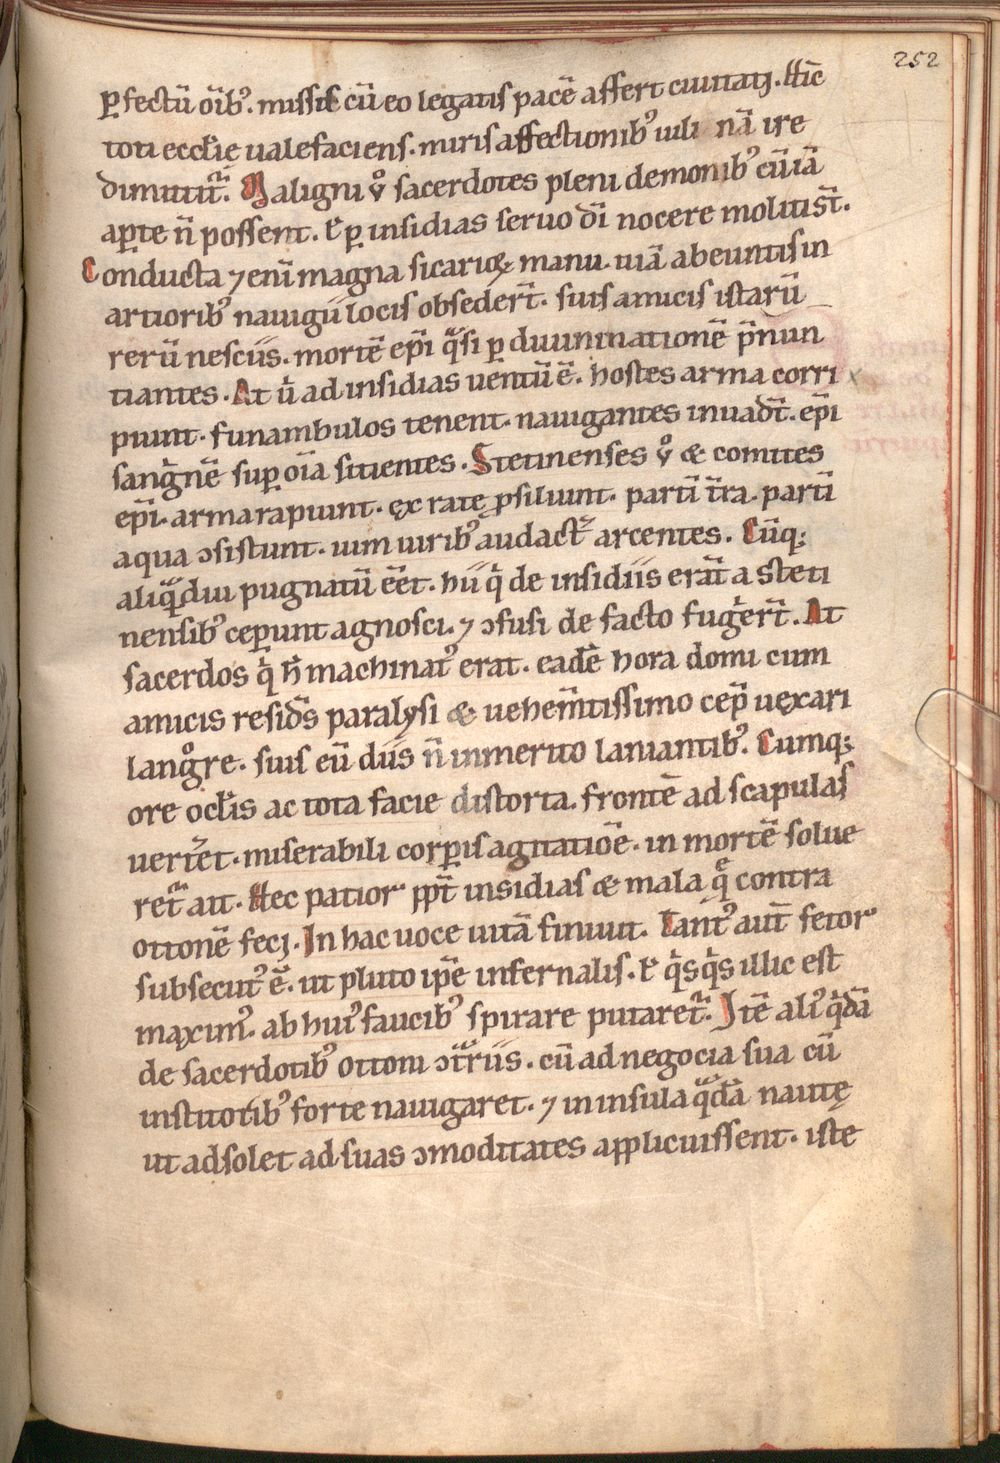 252
ꝑfectū oīb᷒. missis cū eo legatis pacē affert ciuitatj. Hīc
toti eccl̄ię ualefaciens. miris affectionib᷒ uili nā ire
dimittit᷑. Maligni ỏ sacerdotes pleni demonib᷒ cū iā
aꝑte n̄ possent. ꝉ ꝑ insidias seruo dī nocere molitist̄.
Conducta ⁊ enī magna sicarioꝝ manu. uiā abeuntis in
artiorib᷒ nauigii locis obseder̄t. suis amicis istarū
rerū nesciis. mortē ep̄i qᷓsi ꝑ diuinationē p̄nun
tiantes. At ů ad insidias uentū ē. hostes arma corri
piunt. funambulos tenent. nauigantes inuadt̄. ep̄i
sangͥnē suꝑ oīa sitientes. Stetinenses ỏ & comites
ep̄i. arma rapiunt. ęx ratę ꝓsiliunt. partī t̄ra. partī
aqua ɔsistunt. uim uirib᷒ audact᷑ arcentes. Cūq;
aliqᷓdiu pugnatū eēt. hii qͥ de insidiis erāt a steti
nensib᷒ ceꝑunt agnosci. ⁊ ɔfusi de facto fugͤer̄t. At
sacerdos qͥ h̄ machinat᷒ erat. eadē hora domi cum
amicis resid̄s paralysi & uehem̄tissimo cep̄ uęxari
langͦre. suis eū diis n̄ inmerito laniantib᷒. Cumq;
ore ocl̄is ac tota facie distorta. frontē ad scapulas
uert᷑et. miserabili corꝑis agitatiōe. in mortē solue
ret᷑ ait. Hec patior ꝓpt̄ insidias & mala qͤ contra
ottonē fecj. In hac uoce uitā finiuit. Tant᷒ aut̄ fetor
subsecut᷒ ē. ut pluto ip̄e infernalis. ꝉ qͥsqͥs illic est
maxim᷒. ab hui᷒ faucib᷒ spirare putaret᷑. Itē ali᷒ qͥdā
de sacerdotib᷒ ottoni ɔt᷑riis. cū ad negocia sua cū
instiotib᷒ forte nauigaret. ⁊ in insula qᷓdā nautę
ut adsolet ad suas ɔmoditates applicuissent. iste